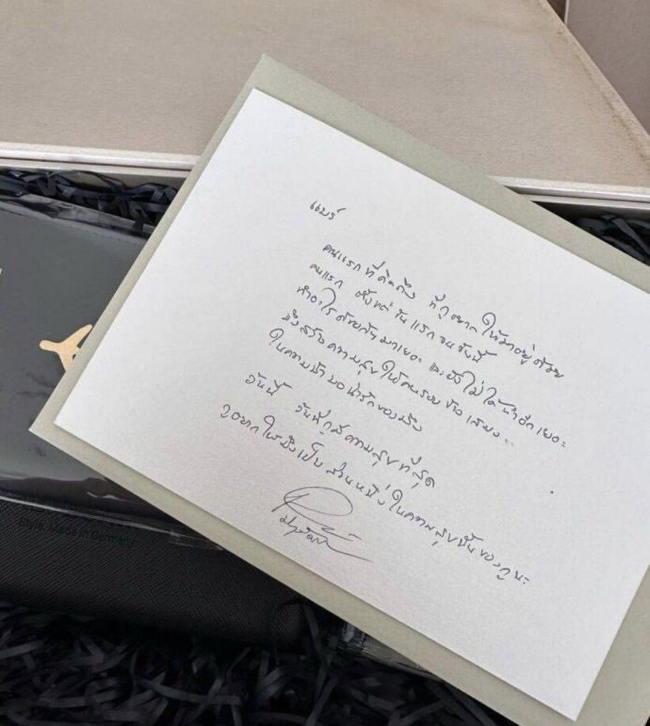 คนแรกที่คิดถึง ที่กูอยากให้มาอยู่ด้วย
คนแรก ตั้งแต่วันแรกจนวันนี้
ทำอะไรด้วยกันมาเยอะ และยังไม่ได้ทำอีกเยอะ
มึงสร้างความสุขให้คนรอบข้างเสมอ..
ในความ น่ารักของมึง
วันนี้ วันที่กูมีความสุขที่สุด
กูอยากให้มึงเป็นส่วนหนึ่งในความสุขนั้นของกูนะ
Style. Made in Germany